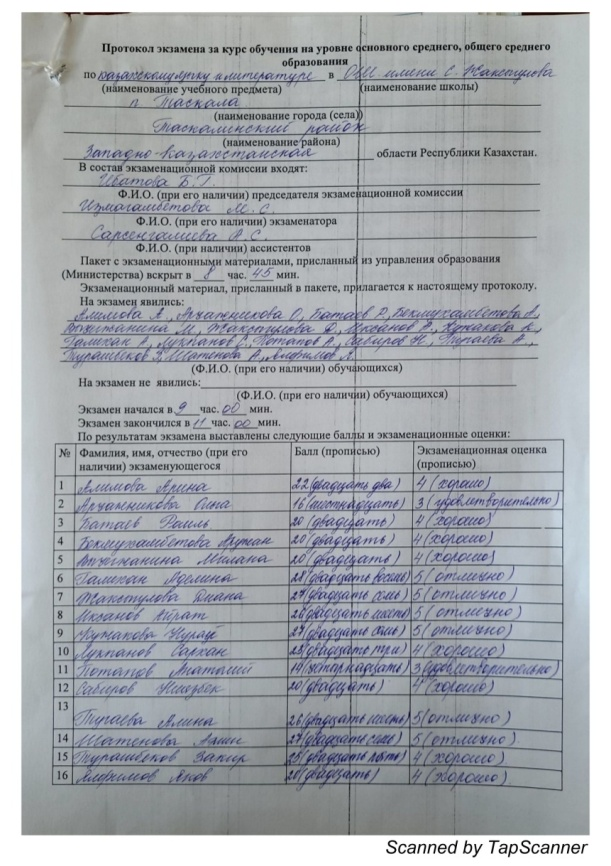 Протокол экзамена за курс обучения на уровне основного среднего, общего среднего
образования
по казахскому языку и литературе в ОШ имени С. Жаксыгулова
(наименование учебного предмета) (наименование школы)
п. Таскала
(наименование города (села))
Таскалинский район
(наименование района)
Западно-Казахстанская области Республики Казахстан.
В состав экзаменационной комиссии входят:
Ф.И.О. (при его наличии) председателя экзаменационной комиссии
Измагамбетова М. С.
Ф.И.О. (при его наличии) экзаменатора
Сарсенгалиева А. С.
Ф.И.О. (при наличии) ассистентов
Пакет с экзаменационными материалами, присланный из управления образования
(Министерства) вскрыт в 8 час. 45 мин.
Экзаменационный материал, присланный в пакете, прилагается к настоящему протоколу.
На экзамен явились:
Алимова А., О, Батаев Р, Бекмухамбетова А,
М, Д, Иксанов А,
Галихан А, Лукпанов С, Потапов А, Сабиров Н, Тугаева А,
Шатенова А,
(Ф.И.О. (при его наличии) обучающихся)
На экзамен не явились:
(Ф.И.О. (при его наличии) обучающихся)
Экзамен начался в 9 час. 00 мин.
Экзамен закончился в 11 час. 00 мин.
По результатам экзамена выставлены следующие баллы и экзаменационные оценки:
№ Фамилия, имя, отчество (при его наличии) экзаменуемого Балл (прописью) Экзаменационная оценка (прописью)
1 Алимова Арина 22 (двадцать два) 4 (хорошо)
2 16 (шестнадцать) 3 (удовлетворительно)
3 Батаев 20 (двадцать) 4 (хорошо)
4 Бекмухамбетова Аружан 20 (двадцать) 4 (хорошо)
5 Милана 20 (двадцать) 4 (хорошо)
6 Галихан Аделина 28 (двадцать восемь) 5 (отлично)
7 Диана 27 (двадцать семь) 5 (отлично)
8 Иксанов Айрат 26 (двадцать шесть) 5 (отлично)
9 27 (двадцать семь) 5 (отлично)
10 Лукпанов Сархан 23 (двадцать три) 4 (хорошо)
11 Потапов Анатолий 14 (четырнадцать) 3 (удовлетворительно)
12 Сабиров 20 (двадцать) 4 (хорошо)
13 Тугаева Амина 26 (двадцать шесть) 5 (отлично)
14 Шатенова 27 (двадцать семь) 5 (отлично).
15 25 (двадцать пять) 4 (хорошо)
16 20 (двадцать) 4 (хорошо).
Scanned by TapScanner